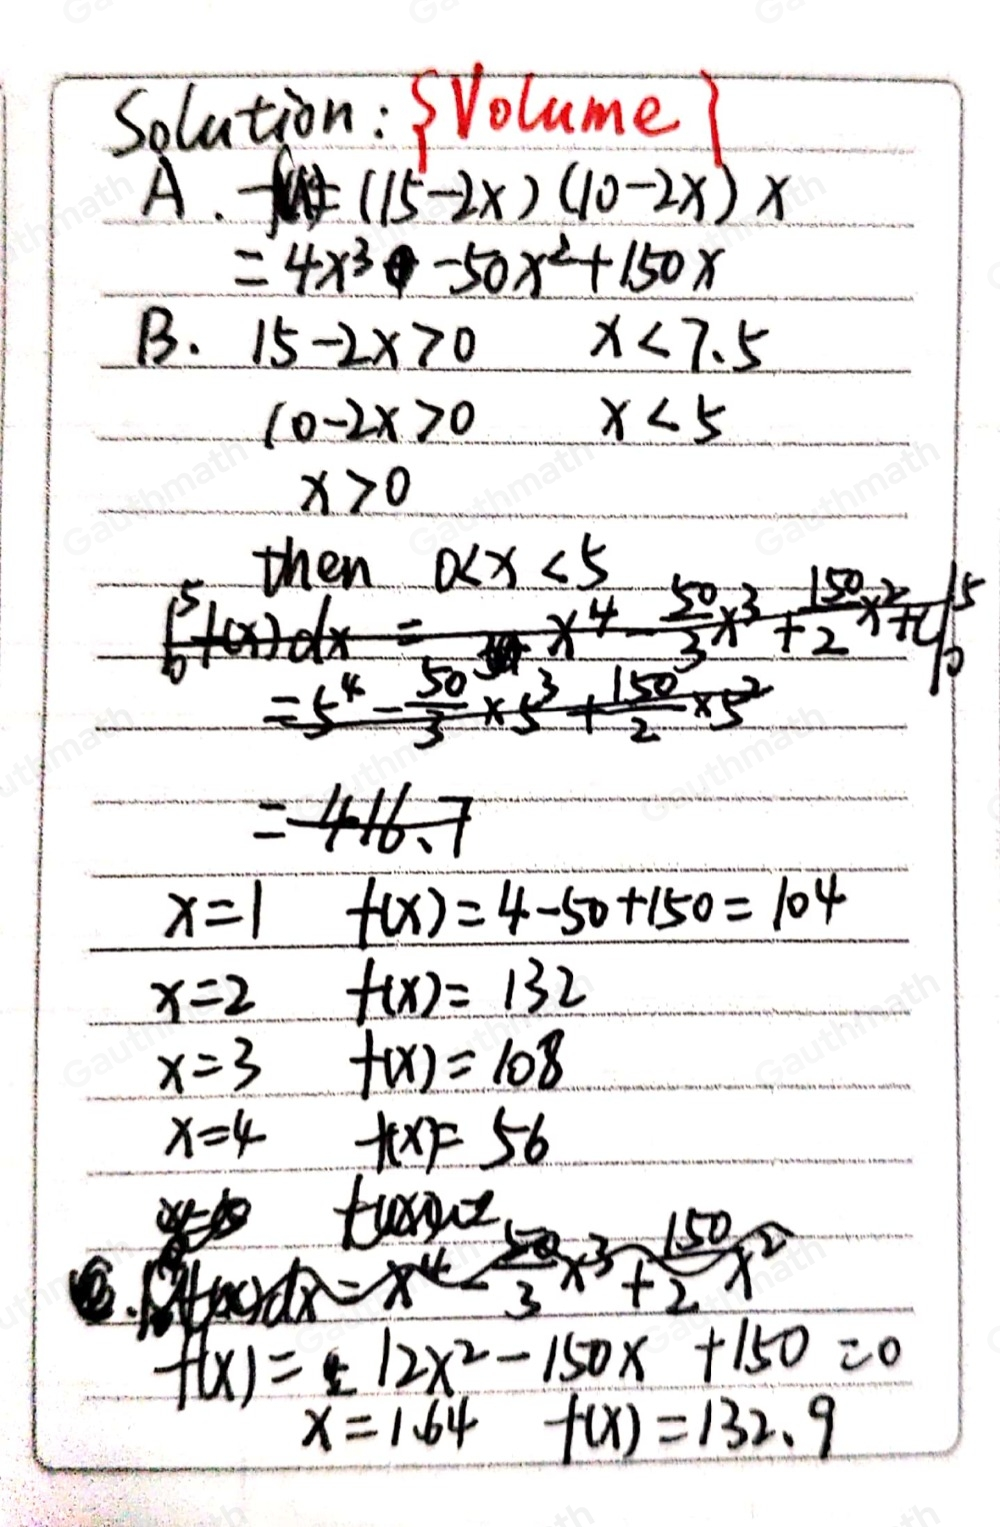 Solution: {Volume}
A. f(x)= (15-2x)(10-2x)x
= 4x³ -50x²+150x
B. 15-2x>0 x<7.5
10-2x>0 x<5
x>0
then 0<x<5
∫₀⁵ f(x)dx = x⁴ - 50/3 x³ + 150/2 x² + c |₀⁵
= 5⁴ - 50/3 × 5³ + 150/2 × 5²
= 416.7
x=1 f(x)=4-50+150=104
x=2 f(x)= 132
x=3 f(x)= 108
x=4 f(x)= 56
f(x)dx = x⁴ - 50/3 x³ + 150/2 x²
f(x)= 12x²-150x +150 =0
x=1.64 f(x)=132.9
Gauthmath